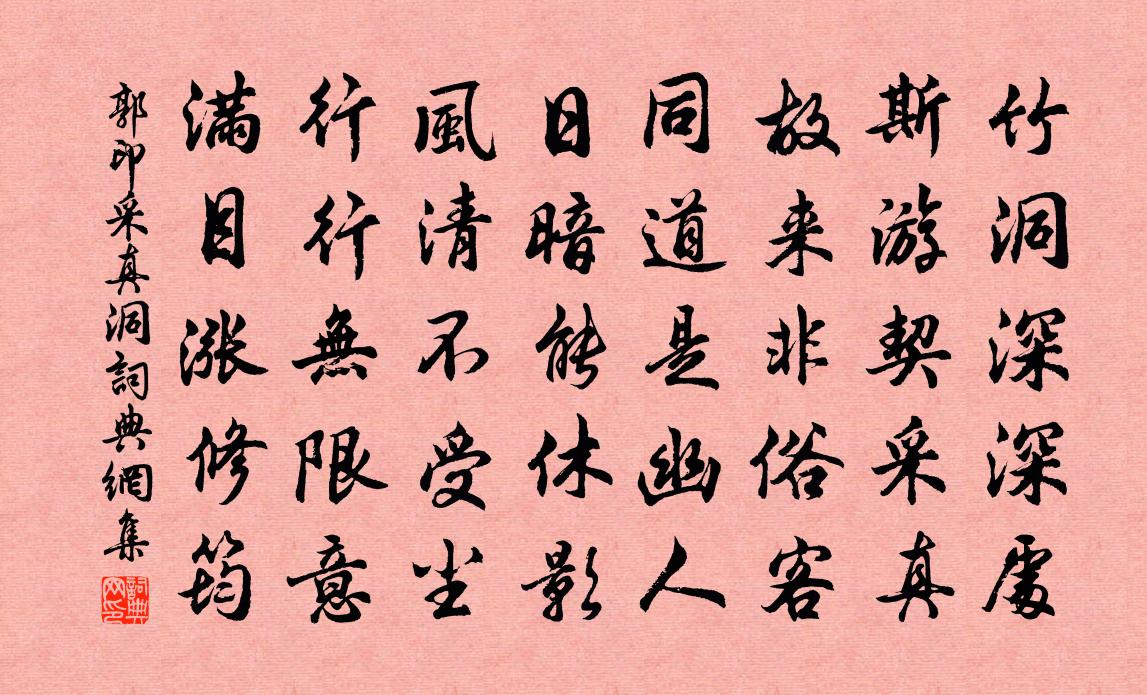 竹洞深深處
斯游契采真
故来非俗客
同道是幽人
日暗能休影
風清不受尘
行行無限意
满目漲修筠
郭印采真洞詞典網集
詞典网印